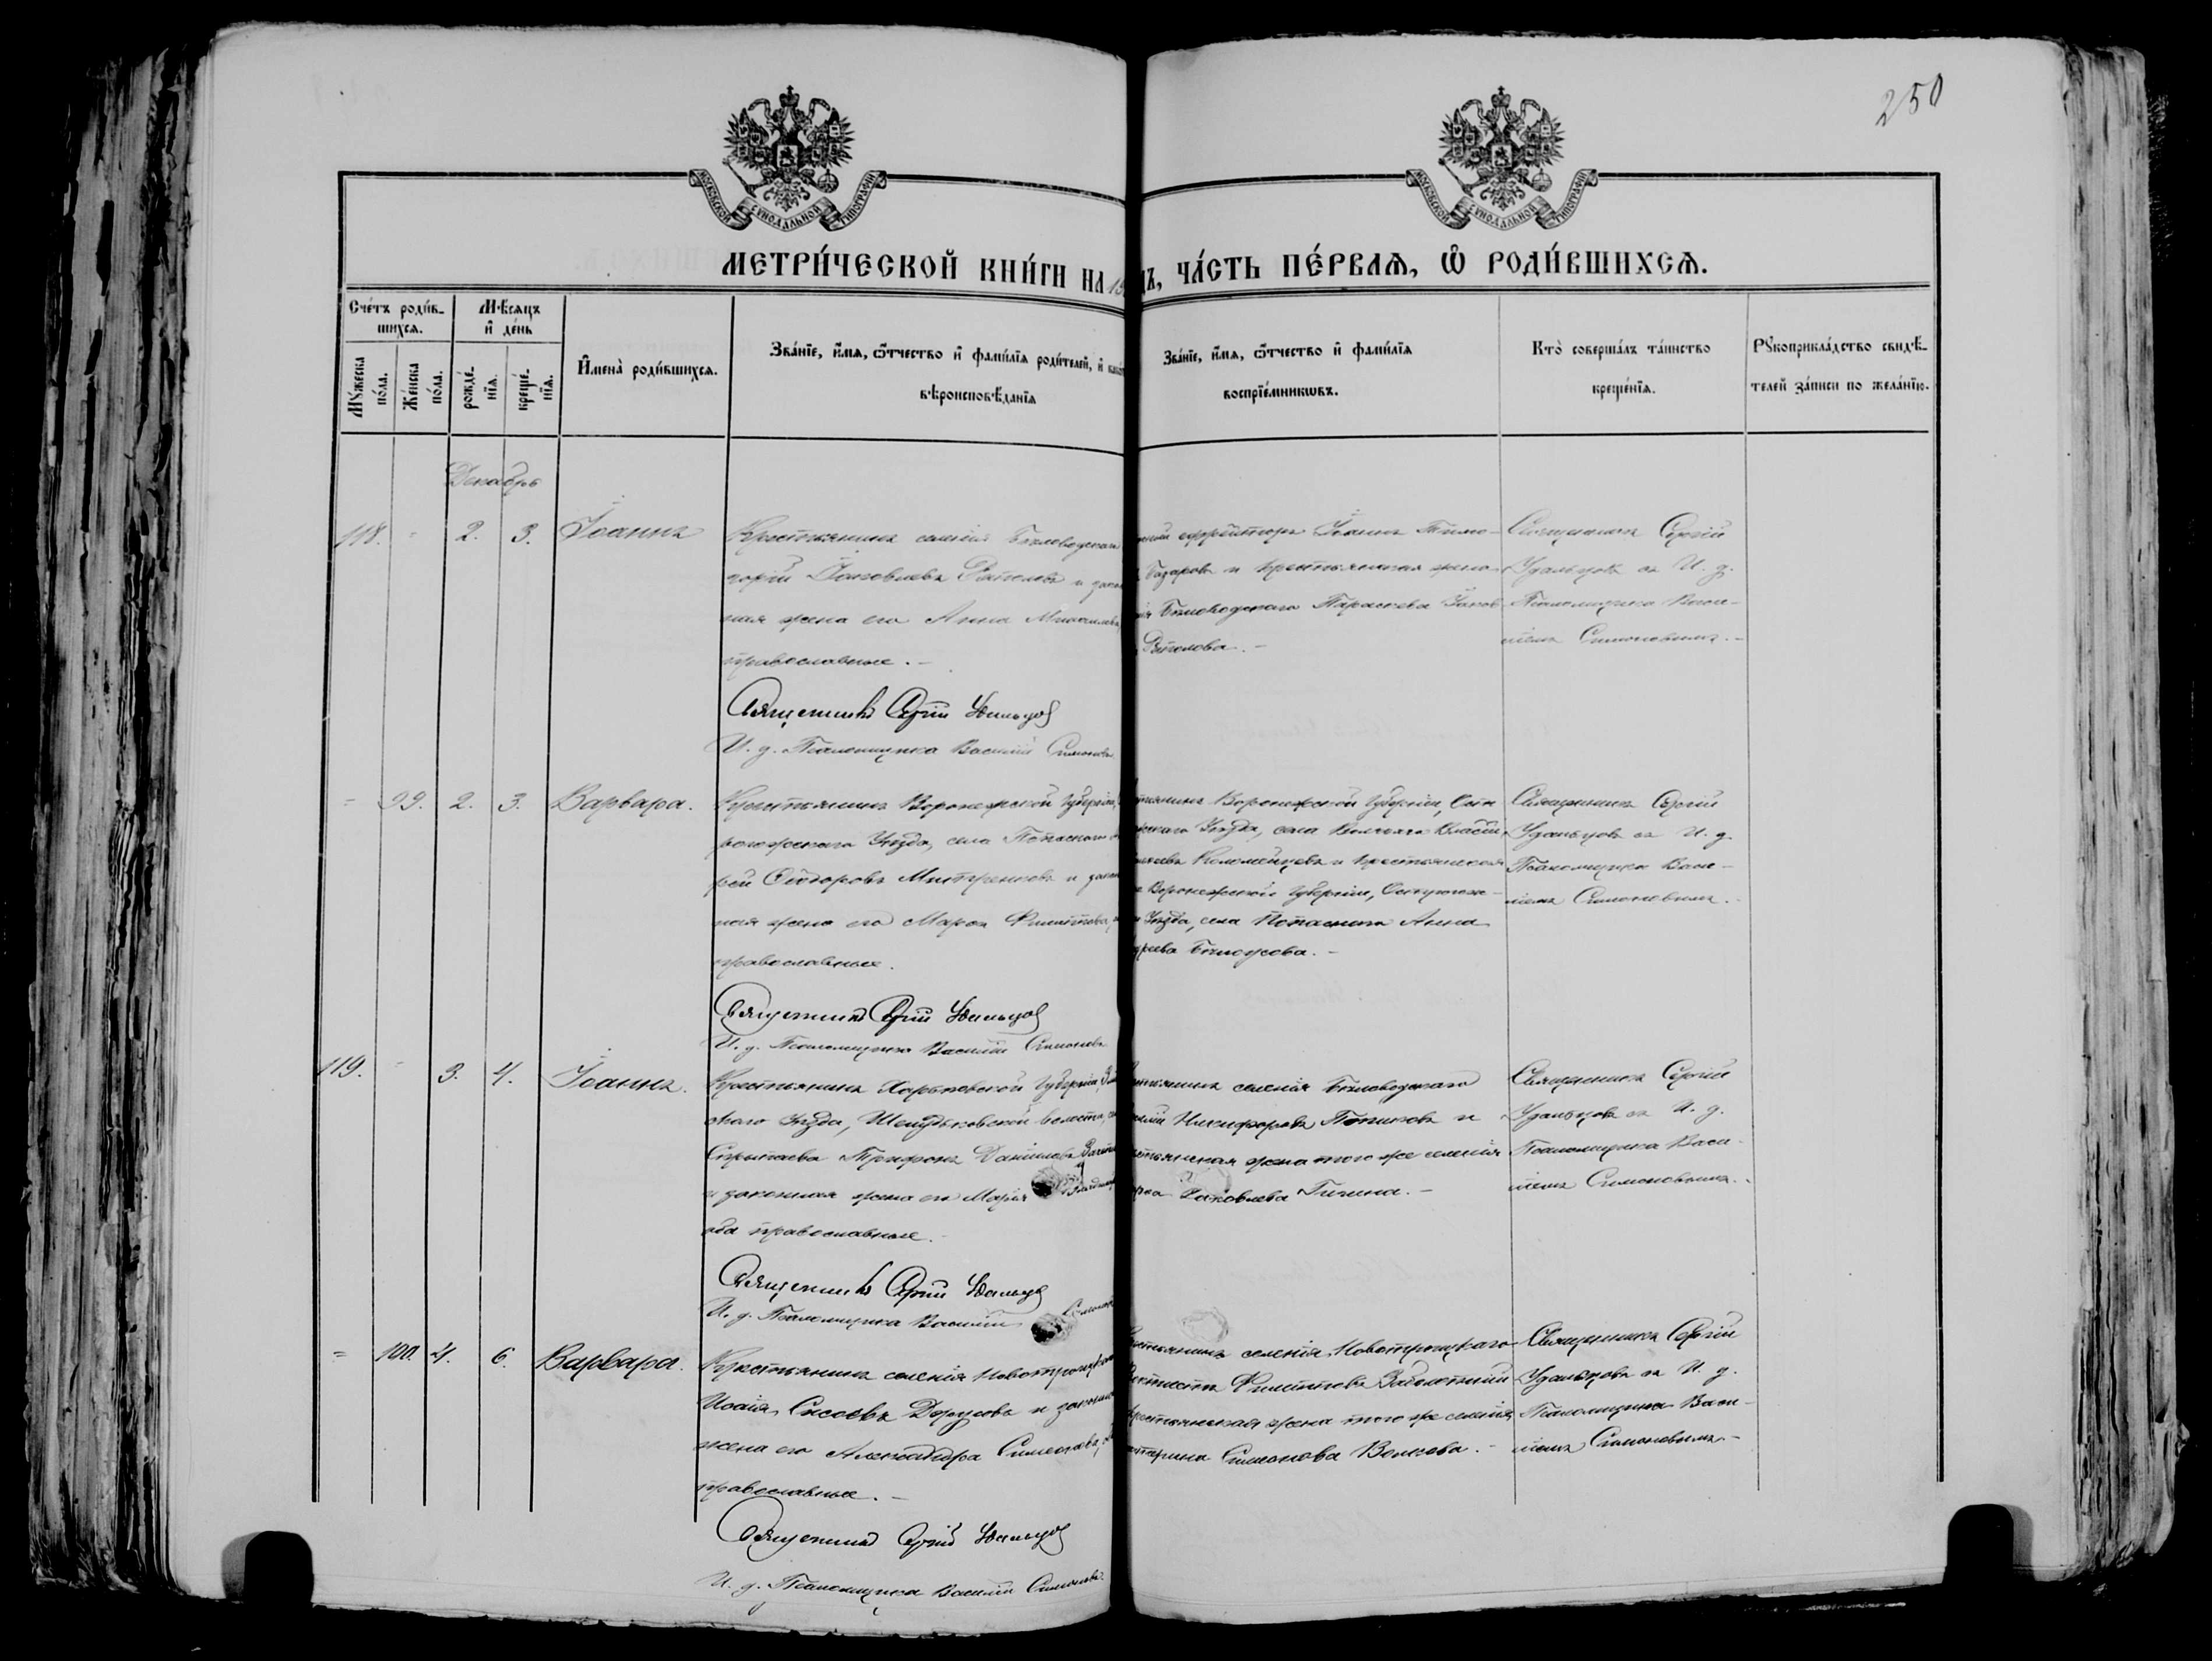 250
МОСКОВСКОЙ СѴНОДАЛЬНОЙ ТИПОГРАФІИ
МОСКОВСКОЙ СѴНОДАЛЬНОЙ ТИПОГРАФІИ
МЕТРИ́ЧЕСКОЙ КНИ́ГИ НА
ЧА́СТЬ ПЕ́РВАѦ, Ѡ РОДИ́ВШИХСѦ.
Сче́тъ роди́в-
шихсѧ.
Мѣсѧцъ
и҆ де́нь
Мꙋ́жеска
по́ла.
Же́нска
по́ла.
рожде́-
нїѧ.
креще́-
нїѧ.
И҆мена̀ роди́вшихсѧ.
Зва́нїе, и҆́мѧ, ѻ҆́тчество и҆ фами́лїѧ роди́телей, и҆
вѣроисповѣ́данїѧ
Зва́нїе, и҆́мѧ, ѻ҆́тчество и҆ фами́лїѧ
воспрїе́мникѡвъ.
Кто̀ соверша́лъ та́инство
креще́нїѧ.
Рꙋкоприкла́дство свидѣ́-
телей за́писи по жела́нїю.
Декабрь
118. - 2. 3. Іоаннъ
Крестьянинъ селенія Бѣловодскаго
горій Яковлевъ и закон
ная жена его Анна Михаилова,
православные. -
Священникъ Сергій Удальцовъ
И. д. Псаломщика Василій Симоновъ
ефрейторъ Іоаннъ Тимо-
и крестьянская жена
Бѣловодскаго Параскева Яков
Священникъ Сергій
Удальцовъ съ И. д.
Псаломщика Васи-
ліемъ Симоновымъ. -
= 99. 2. 3. Варвара.
Крестьянинъ Воронежской Губерніи,
рогожскаго Уѣзда, села
рей Ѳеодоровъ и закон
ная жена его Марѳа Филиппова,
православные.
Священникъ Сергій Удальцовъ
И. д. Псаломщика Василій Симоновъ
Воронежской Губерніи, Остро
Уѣзда, села
Коломейцевъ и крестьянская
Воронежской Губерніи, Острогож-
Уѣзда, села Анна
Бѣлоусова. -
Священникъ Сергій
Удальцовъ съ И. д.
Псаломщика Васи-
ліемъ Симоновымъ. -
119. - 3. 4. Іоаннъ.
Крестьянинъ Харьковской Губерніи,
скаго Уѣзда, волости,
Трифонъ Даніиловъ
и законная жена его Марія
оба православные.
Священникъ Сергій Удальцовъ
И. д. Псаломщика Василій Симоновъ
селенія Бѣловодскаго
Никифоровъ и
жена того же селенія
Яковлева -
Священникъ Сергій
Удальцовъ съ И. д.
Псаломщика Васи-
ліемъ Симоновымъ. -
= 100. 4. 6. Варвара.
Крестьянинъ селенія Новотроицкаго
Сисоевъ и законная
жена его Александра Симеонова,
православные. -
Священникъ Сергій Удальцовъ
И. д. Псаломщика Василій Симоновъ
селенія Новотроицкаго
Филипповъ
жена того же селенія
Симеонова Волкова. -
Священникъ Сергій
Удальцовъ съ И. д.
Псаломщика Васи-
ліемъ Симоновымъ. -